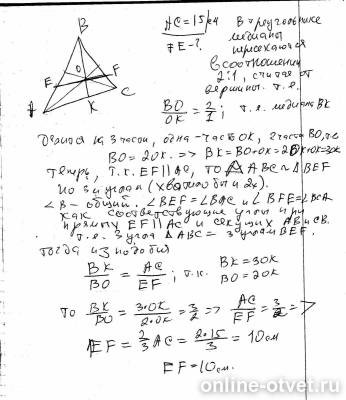 B
AC = 15 см
FE - ?
В треугольнике
медианы
пересекаются
в соотношении
2:1, считая от
вершины. т.е.
E O F
A K C
BO/OK = 2/1; т.е. медиана BK
на 3 части, одна - часть OK, 2 части BO, т.е.
BO = 2OK. => BK = BO+OK = 2OK+OK=3OK
Теперь, т.к. EF||AC, то △ABC ~ △BEF
по 3 м углам (хватило бы и 2х).
∠B - общий. ∠BEF = ∠BAC и ∠BFE = ∠BCA
как соответствующие углы при
прямых EF||AC и секущих AB и CB.
т.е. 3 угла △ABC = 3 углам BEF.
тогда из подобия
BK/BO = AC/EF; т.к. BK = 3OK
BO = 2OK
то BK/BO = 3·OK/2·OK = 3/2 => AC/EF = 3/2 =>
EF = 2/3 AC = 2·15/3 = 10 см
EF = 10 см.
online-otvet.ru